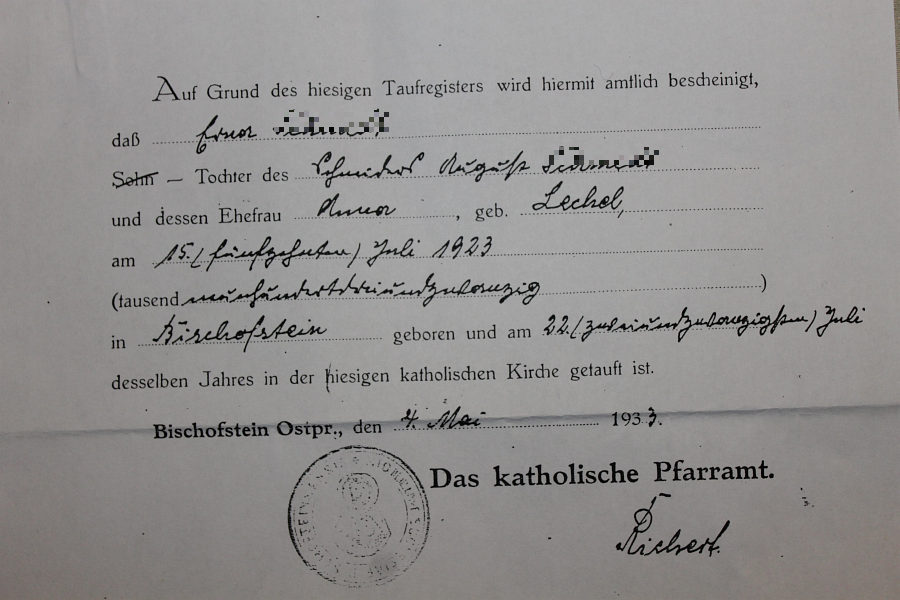 Auf Grund des hiesigen Taufregisters wird hiermit amtlich bescheinigt,
daß Erna
Sohn — Tochter des Schneiders August
und dessen Ehefrau Anna, geb. Lechel,
am 15./fünfzehnten/ Juli 1923
(tausend neunhundertdreiundzwanzig)
in Bischofstein geboren und am 22./zweiundzwanzigsten/ Juli
desselben Jahres in der hiesigen katholischen Kirche getauft ist.
Bischofstein Ostpr., den 4. Mai 1933.
Das katholische Pfarramt.